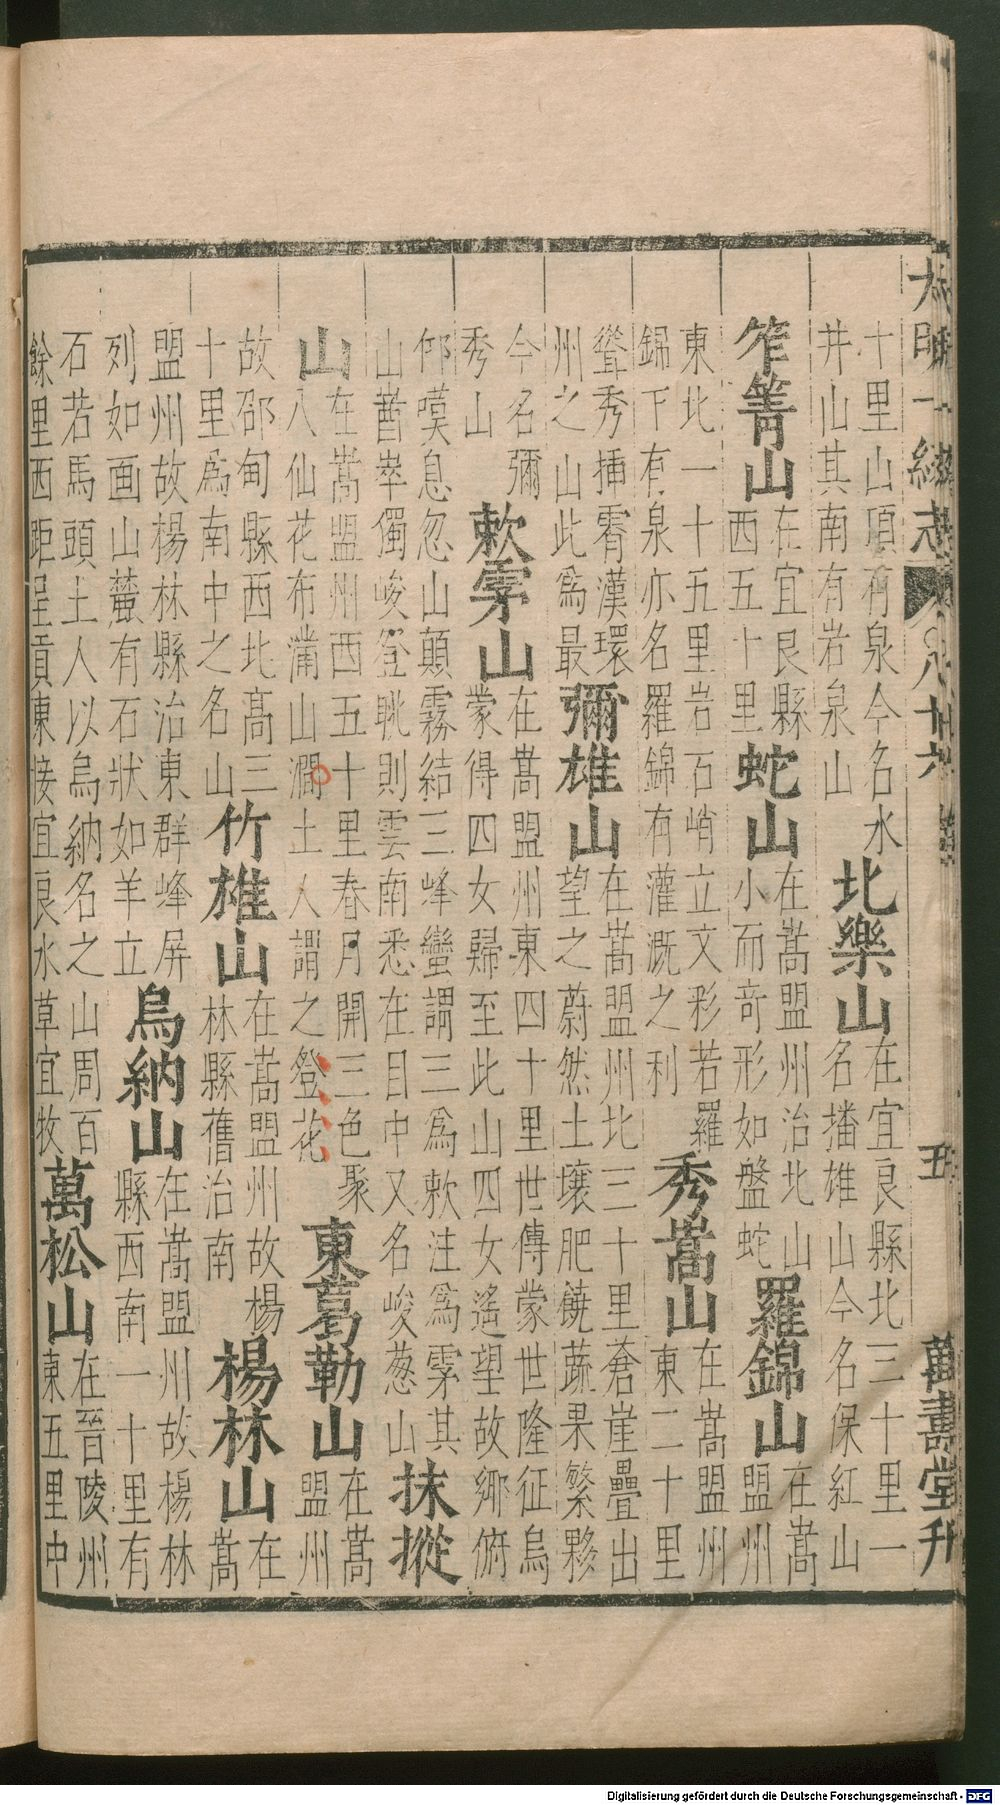 大明一統志 卷八十六 五 萬壽堂刊
十里山頂有泉今名水
井山其南有岩泉山
北樂山
在宜良縣北三十里一
名播雄山今名保紅山
笮箐山
在宜良縣
西五十里
蛇山
在嵩盟州治北山
小而奇形如盤蛇
羅錦山
在嵩
盟州
東北一十五里岩石峭立文彩若羅
錦下有泉亦名羅錦有灌溉之利
秀嵩山
在嵩盟州
東二十里
聳秀揷霄漢環
州之山此爲最
彌雄山
在嵩盟州北三十里蒼崖疊出
望之蔚然土壤肥饒蔬果繁夥
今名彌
秀山
欶孛山
在嵩盟州東四十里世傳蒙世隆征烏
蒙得四女歸至此山四女遙望故鄉俯
仰嘆息忽山顛霧結三峰蠻謂三爲欶注爲孛其
山崷崒獨峻登眺則雲南悉在目中又名峻葱山
抹㩳
山
在嵩盟州西五十里春月開三色聚
八仙花布滿山澗土人謂之登花
東葛勒山
在嵩
盟州
故邵甸縣西北高三
十里爲南中之名山
竹雄山
在嵩盟州故楊
林縣舊治南
楊林山
在
嵩
盟州故楊林縣治東群峰屏
列如画山麓有石狀如羊立
烏納山
在嵩盟州故楊林
縣西南一十里有
石若馬頭土人以烏納名之山周百
餘里西距呈貢東接宜良水草宜牧
萬松山
在晉陵州
東五里中
Digitalisierung gefördert durch die Deutsche Forschungsgemeinschaft - DFG